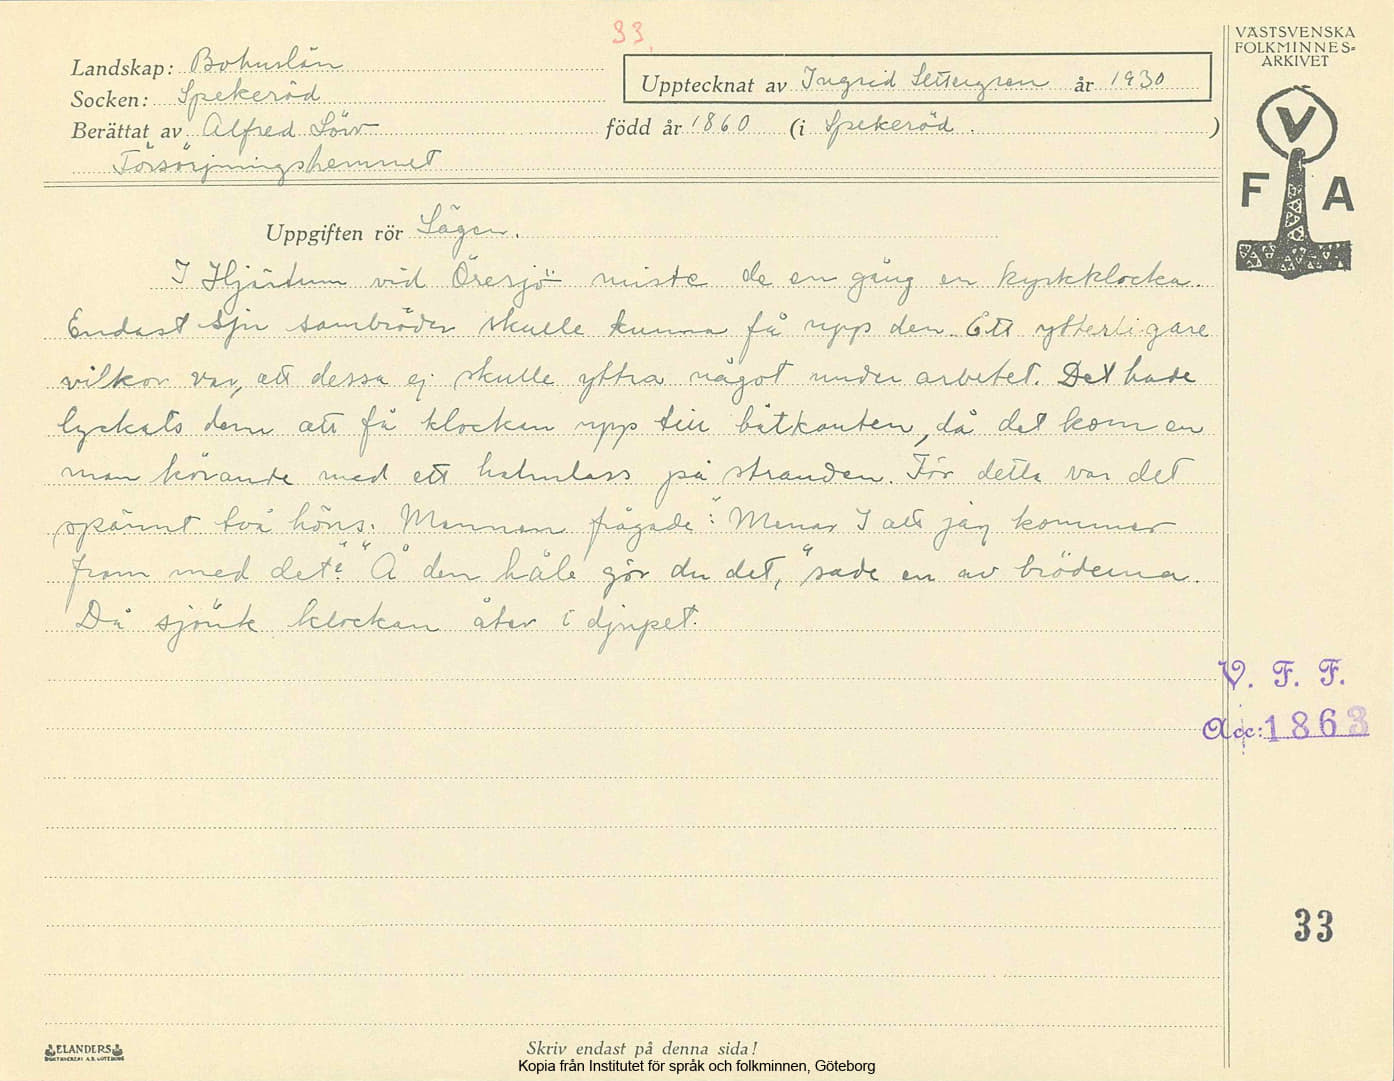 33.
VÄSTSVENSKA
FOLKMINNES=
ARKIVET
Landskap: Bohuslän
Upptecknat av Ingrid Settergren år 1930
Socken: Spekeröd
Berättat av Alfred Lörv född år 1860 (i Spekeröd.)
Försörjningshemmet
V
F A
Uppgiften rör Sägen.
I Hjärtum vid Öresjö miste de en gång en kyrkklocka.
Endast sju sambröder skulle kunna få upp den. Ett ytterligare
vilkor var, att dessa ej skulle yttra något under arbetet. Det hade
lyckats dem att få klockan upp till båtkanten, då det kom en
man körande med ett halmlass på stranden. För detta var det
spännt två höns. Mannen frågade: "Menar I att jag kommer
fram med det?" "Å den håle gör du det," sade en av bröderna.
Då sjönk klockan åter i djupet.
V. F. F.
Acc: 1863
33
ELANDERS
BOKTRYCKERI A.B. GÖTEBORG
Skriv endast på denna sida!
Kopia från Institutet för språk och folkminnen, Göteborg